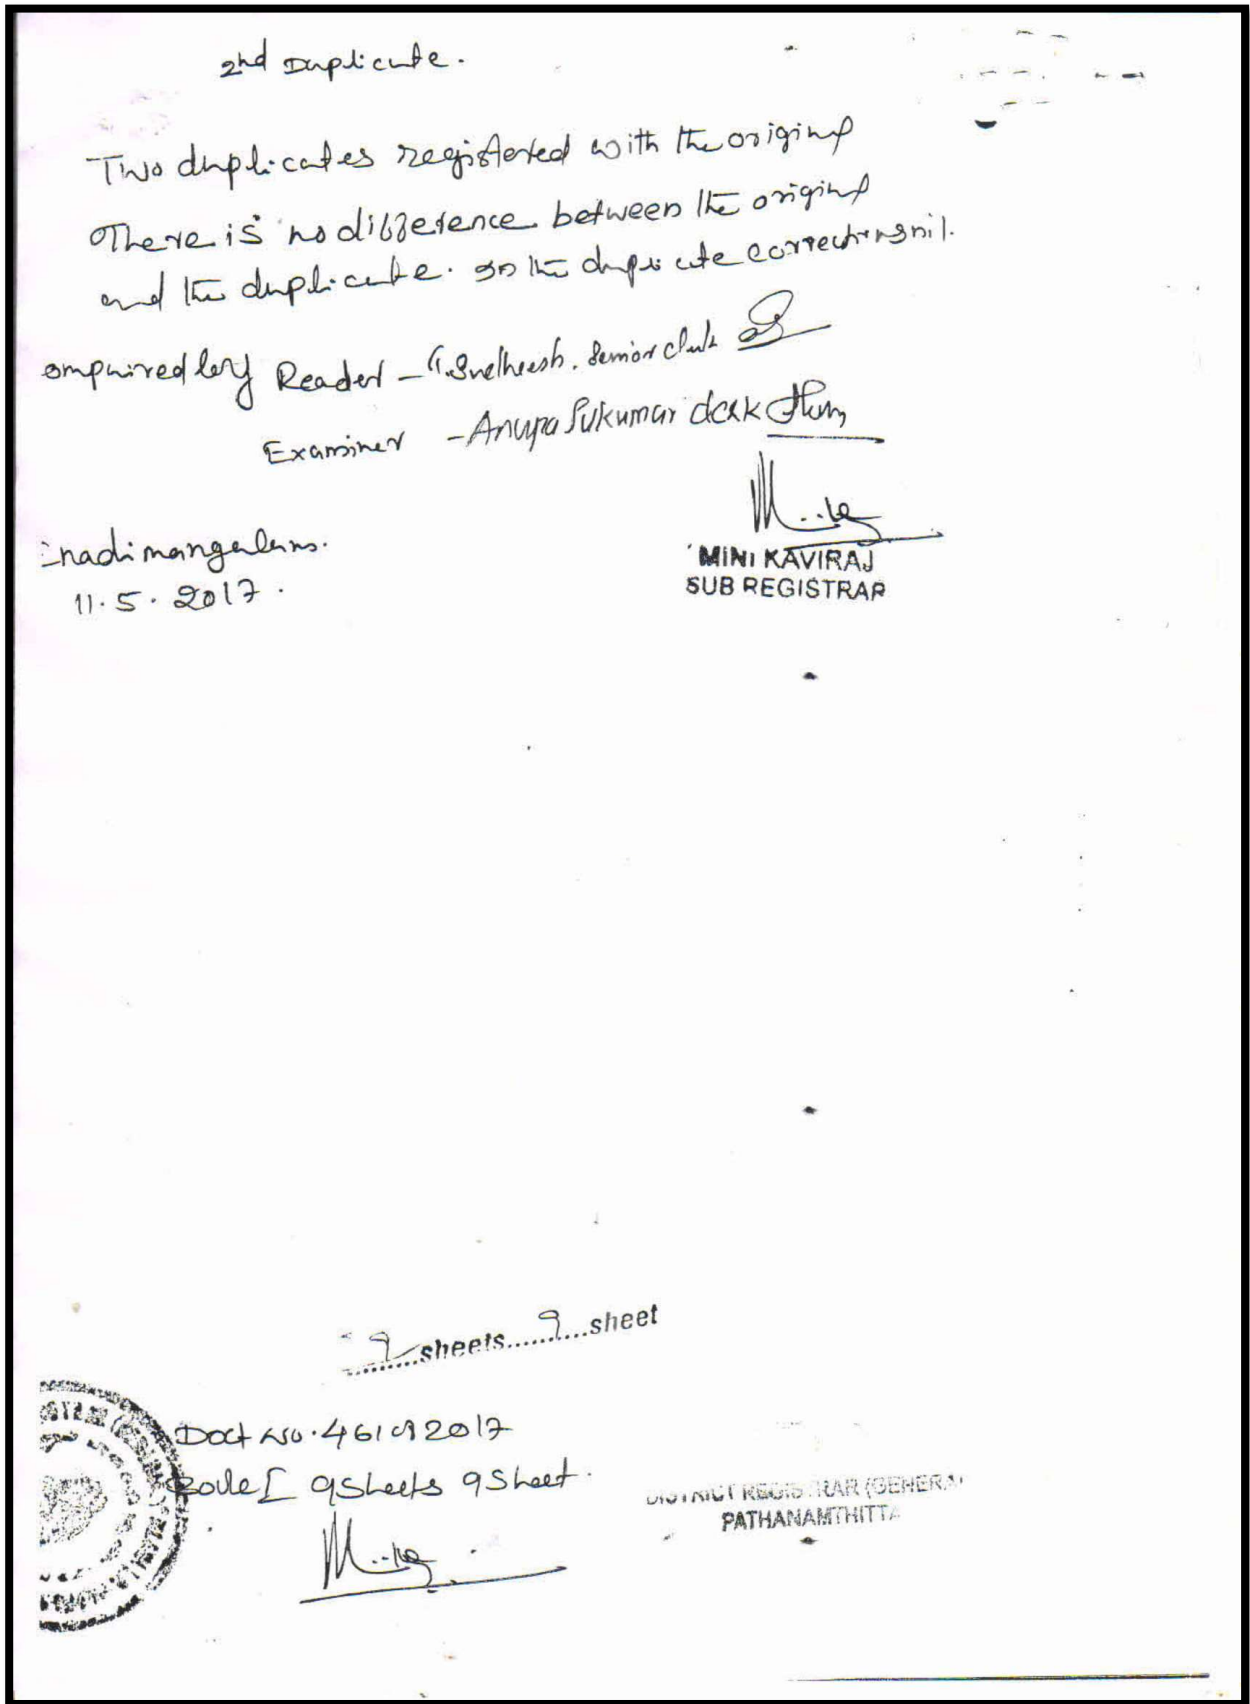 2nd Duplicate.
Two duplicates registered with the original
There is no difference between the original
and the duplicate. In the duplicate corrections nil.
ompaired by Reader - Snelheesh. Senior clerk
Examiner - Anupa Sukumar clerk
Enadimangalam.
11.5.2017.
MINI KAVIRAJ
SUB REGISTRAR
9 sheets.......9...sheet
Doct No. 461 of 2017
Book I 9 Sheets 9 Sheet.
DISTRICT REGISTRAR (GENERAL
PATHANAMTHITTA